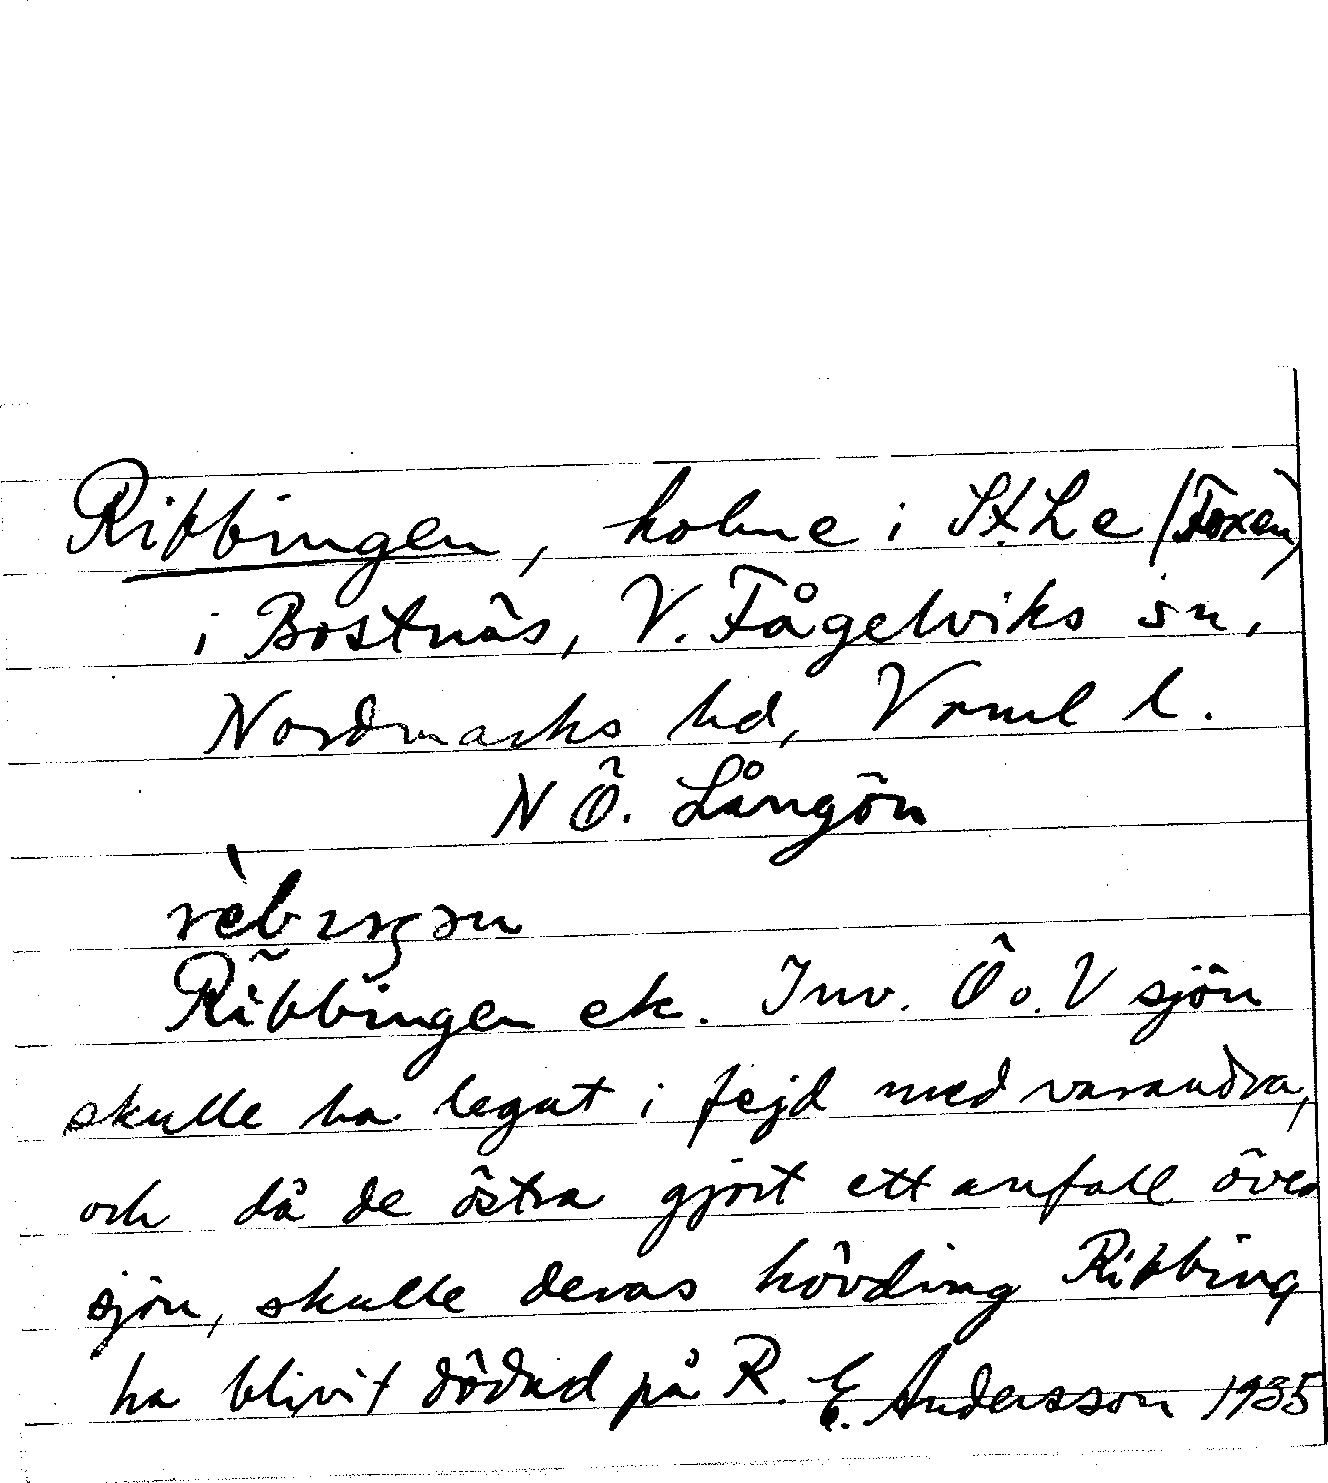 Ribbingen, holme i St. Le (Foxen)
i Bostnäs, V. Fågelviks sn,
Nordmarks hd, Vrml l.
NÖ. Långön
Ribbingen ek. Inv. Ö o. V sjön
skulle ha legat i fejd med varandra,
och då de östra gjort ett anfall över
sjön, skulle deras hövding Ribbing
ha blivit dödad på R. E. Andersson 1935